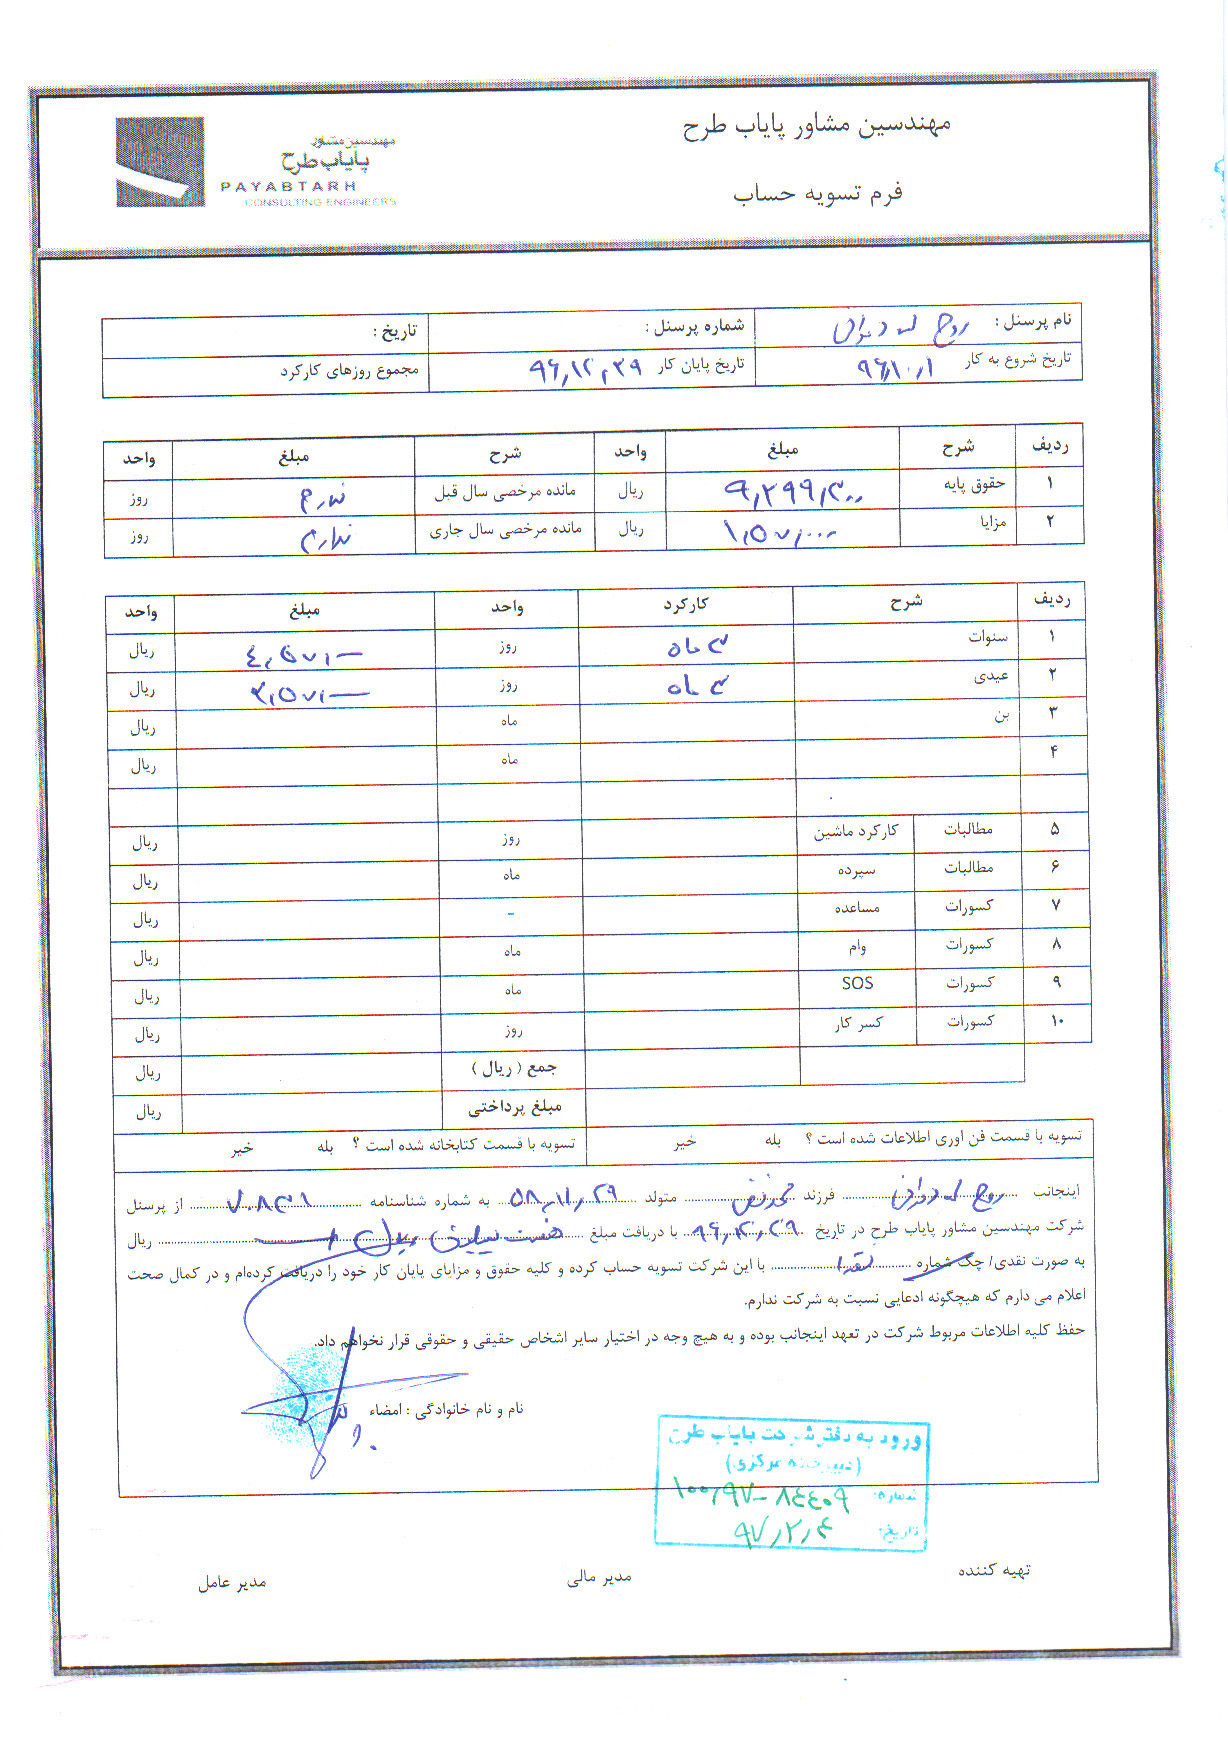 مهندسین مشاور پایاب طرح
فرم تسویه حساب
مهندسین مشاور
پایاب طرح
PAYABTARH
CONSULTING ENGINEERS
نام پرسنل : روح اله شماره پرسنل : تاریخ :
تاریخ شروع به کار ۹۶,۱۰,۱ تاریخ پایان کار ۹۶,۱۲,۲۹ مجموع روزهای کارکرد
ردیف شرح مبلغ واحد شرح مبلغ واحد
۱ حقوق پایه ۹,۲۹۹,۳۰۰ ریال مانده مرخصی سال قبل ندارم روز
۲ مزایا ۱,۵۷۰,۰۰۰ ریال مانده مرخصی سال جاری ندارم روز
ردیف شرح کارکرد واحد مبلغ واحد
۱ سنوات ۳ ماه روز ریال
۲ عیدی ۳ ماه روز ریال
۳ بن ماه ریال
۴ ماه ریال
۵ مطالبات کارکرد ماشین روز ریال
۶ مطالبات سپرده ماه ریال
۷ کسورات مساعده - ریال
۸ کسورات وام ماه ریال
۹ کسورات SOS ماه ریال
۱۰ کسورات کسر کار روز ریال
جمع ( ریال ) ریال
مبلغ پرداختی ریال
تسویه با قسمت فن آوری اطلاعات شده است ؟ بله خیر تسویه با قسمت کتابخانه شده است ؟ بله خیر
اینجانب روح اله فرزند متولد ۵۸,۱۱,۲۹ به شماره شناسنامه ۷۰۸۳۱ از پرسنل
شرکت مهندسین مشاور پایاب طرح در تاریخ ۹۶,۱۲,۲۹ با دریافت مبلغ هفت میلیون ریال ریال
به صورت نقدی/ چک شماره نقدا با این شرکت تسویه حساب کرده و کلیه حقوق و مزایای پایان کار خود را دریافت کرده‌ام و در کمال صحت
اعلام می دارم که هیچگونه ادعایی نسبت به شرکت ندارم.
حفظ کلیه اطلاعات مربوط شرکت در تعهد اینجانب بوده و به هیچ وجه در اختیار سایر اشخاص حقیقی و حقوقی قرار نخواهم داد.
نام و نام خانوادگی : امضاء
ورود به دفتر شرکت پایاب طرح
(دبیرخانه مرکزی)
شماره: ۱۰۰,۹۷-۸۴۴۰۹
تاریخ: ۹۷,۲,۴
تهیه کننده مدیر مالی مدیر عامل